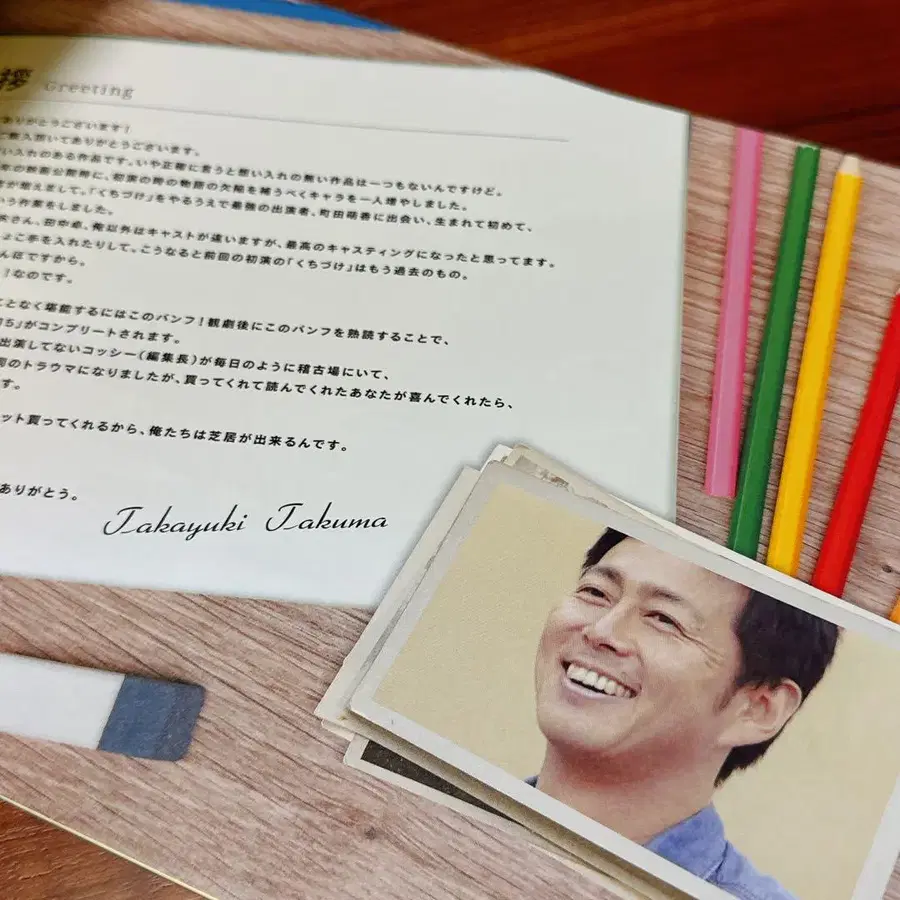 拶 Greeting
ありがとうございます!
数入頂いてありがとうございます。
い入れのある作品です。いや正確に言うと思い入れの無い作品は一つもないんですけど。
の映画公開時に、初演の時の物語の欠陥を補うべくキャラを一人増やしました。
が燃えまして。「くちづけ」をやるうえで最強の出演者、町田萌香に出会い、生まれて初めて、
いう作業をしました。
さん、田中卓、俺以外はキャストが違いますが、最高のキャスティングになったと思ってます。
ょこ手を入れたりして、こうなると前回の初演の「くちづけ」はもう過去のもの。
んほですから。
!なのです。
ことなく堪能するにはこのパンフ!観劇後にこのパンフを熟読することで、
5」がコンプリートされます。
出演してないコッシー(編集長)が毎日のように稽古場にいて、
のトラウマになりましたが、買ってくれて読んでくれたあなたが喜んでくれたら、
す。
ット買ってくれるから、俺たちは芝居が出来るんです。
ありがとう。
Takayuki Takuma